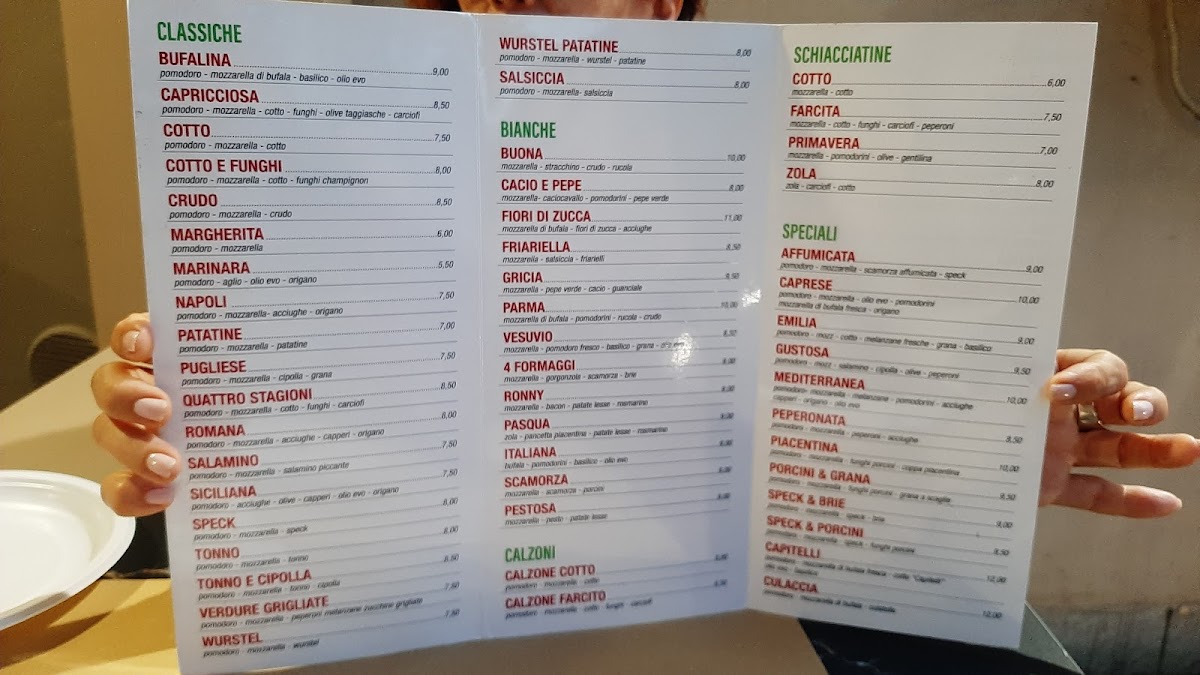 CLASSICHE
BUFALINA 9,00
pomodoro - mozzarella di bufala - basilico - olio evo
CAPRICCIOSA 8,50
pomodoro - mozzarella - cotto - funghi - olive taggiasche - carciofi
COTTO 7,50
pomodoro - mozzarella - cotto
COTTO E FUNGHI 8,00
pomodoro - mozzarella - cotto - funghi champignon
CRUDO 8,50
pomodoro - mozzarella - crudo
MARGHERITA 6,00
pomodoro - mozzarella
MARINARA 5,50
pomodoro - aglio - olio evo - origano
NAPOLI 7,50
pomodoro - mozzarella- acciughe - origano
PATATINE 7,00
pomodoro - mozzarella - patatine
PUGLIESE 7,50
pomodoro - mozzarella - cipolla - grana
QUATTRO STAGIONI 8,50
pomodoro - mozzarella - cotto - funghi - carciofi
ROMANA 8,00
pomodoro - mozzarella - acciughe - capperi - origano
SALAMINO 7,50
pomodoro - mozzarella - salamino piccante
SICILIANA 7,50
pomodoro - acciughe - olive - capperi - olio evo - origano
SPECK 8,00
pomodoro - mozzarella - speck
TONNO 8,00
pomodoro - mozzarella - tonno
TONNO E CIPOLLA 8,50
pomodoro - mozzarella - tonno - cipolla
VERDURE GRIGLIATE 7,50
pomodoro - mozzarella - peperoni melanzane zucchine grigliate
WURSTEL 7,50
pomodoro - mozzarella - wurstel
WURSTEL PATATINE 8,00
pomodoro - mozzarella - wurstel - patatine
SALSICCIA 8,00
pomodoro - mozzarella- salsiccia
BIANCHE
BUONA 10,00
mozzarella - stracchino - crudo - rucola
CACIO E PEPE 8,00
mozzarella- caciocavallo - pomodorini - pepe verde
FIORI DI ZUCCA 11,00
mozzarella di bufala - fiori di zucca - acciughe
FRIARIELLA 8,50
mozzarella - salsiccia - friarielli
GRICIA 9,50
mozzarella - pepe verde - cacio - guanciale
PARMA 10,00
mozzarella di bufala - pomodorini - rucola - crudo
VESUVIO 8,50
mozzarella - pomodoro fresco - basilico - grana - olio evo
4 FORMAGGI
mozzarella - gorgonzola - scamorza - brie
RONNY
mozzarella - bacon - patate lesse - rosmarino
PASQUA
zola - pancetta piacentina - patate lesse - rosmarino
ITALIANA
bufala - pomodorini - basilico - olio evo
SCAMORZA
mozzarella - scamorza - porcini
PESTOSA
mozzarella - pesto - patate lesse
CALZONI
CALZONE COTTO
pomodoro - mozzarella - cotto
CALZONE FARCITO
pomodoro - mozzarella - cotto - funghi - carciofi
SCHIACCIATINE
COTTO 6,00
mozzarella - cotto
FARCITA 7,50
mozzarella - cotto - funghi - carciofi - peperoni
PRIMAVERA 7,00
mozzarella - pomodorini - olive - gentilina
ZOLA 8,00
zola - carciofi - cotto
SPECIALI
AFFUMICATA 9,00
pomodoro - mozzarella - scamorza affumicata - speck
CAPRESE 10,00
pomodoro - mozzarella - olio evo - pomodorini
mozzarella di bufala fresca - origano
EMILIA 9,00
pomodoro - mozz - cotto - melanzane fresche - grana - basilico
GUSTOSA 9,50
pomodoro - mozz - salamino - cipolla - olive - peperoni
MEDITERRANEA 10,00
pomodoro - mozzarella - melanzane - pomodorini - acciughe
capperi - origano - olio evo
PEPERONATA 8,50
pomodoro - mozzarella - peperoni - acciughe
PIACENTINA 10,00
pomodoro - mozzarella - funghi porcini - coppa piacentina
PORCINI & GRANA 9,50
pomodoro - mozzarella - funghi porcini - grana a scaglie
SPECK & BRIE 9,00
pomodoro - mozzarella - speck - brie
SPECK & PORCINI 9,50
pomodoro - mozzarella - speck - funghi porcini
CAPITELLI 12,00
pomodoro - mozzarella di bufala fresca - cotto "Capitelli"
olio evo - basilico
CULACCIA 12,00
pomodoro - mozzarella di bufala - culatello